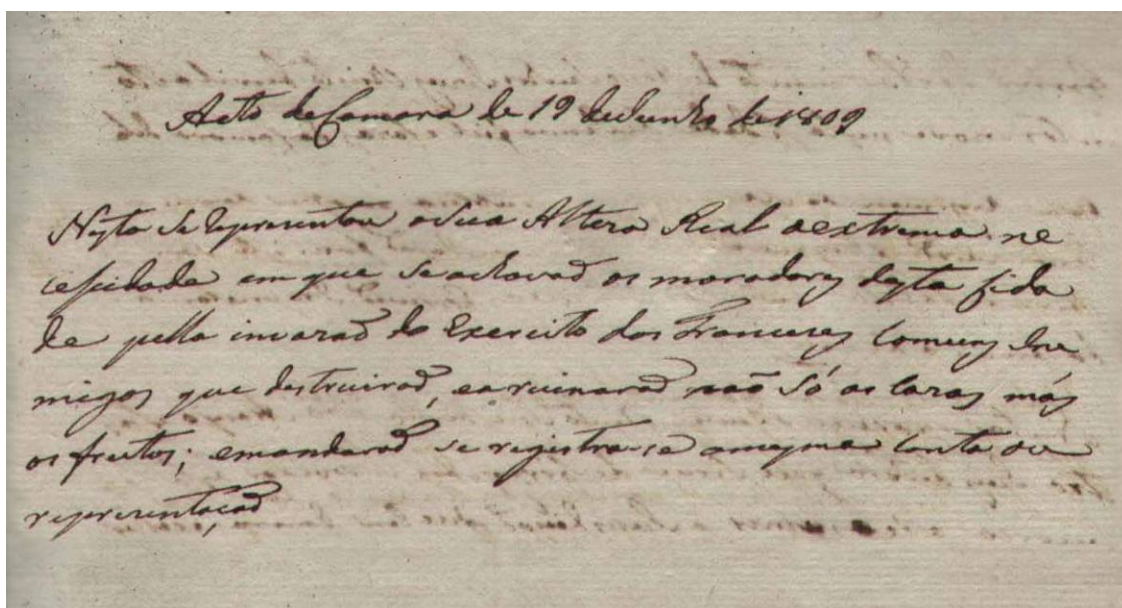 Acto de Camara de 19 de Junho de 1809
Nesta se Representou a Sua Alteza Real a extrema ne
cessidade em que se achavaõ os moradores desta Cida
de pella invazaõ do Exercito dos Francezes comuns Ine
migos que destruiraõ, e a ruinaraõ naõ só as cazas más
os fructos; e mandaraõ se registrase a mesma conta ou
representaçaõ